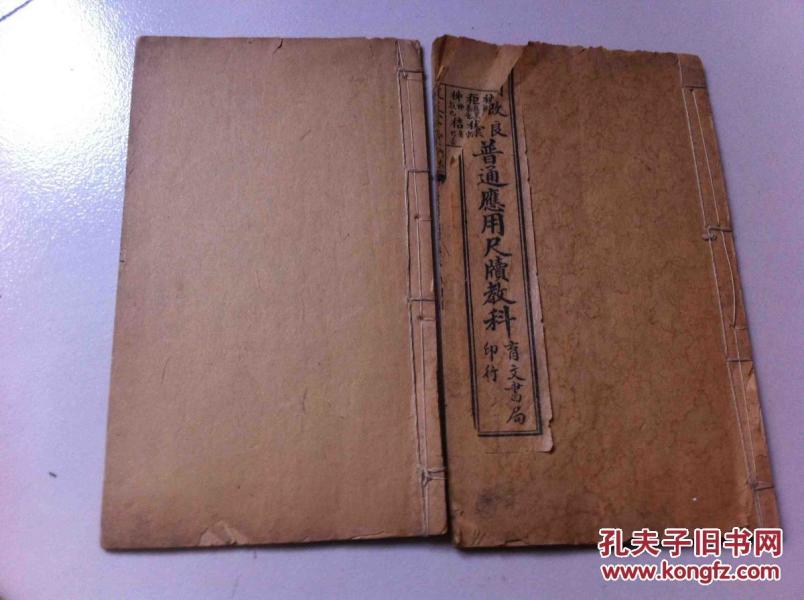 改良
普通應用尺牘教科
育文書局
印行
孔夫子旧书网
www.kongfz.com